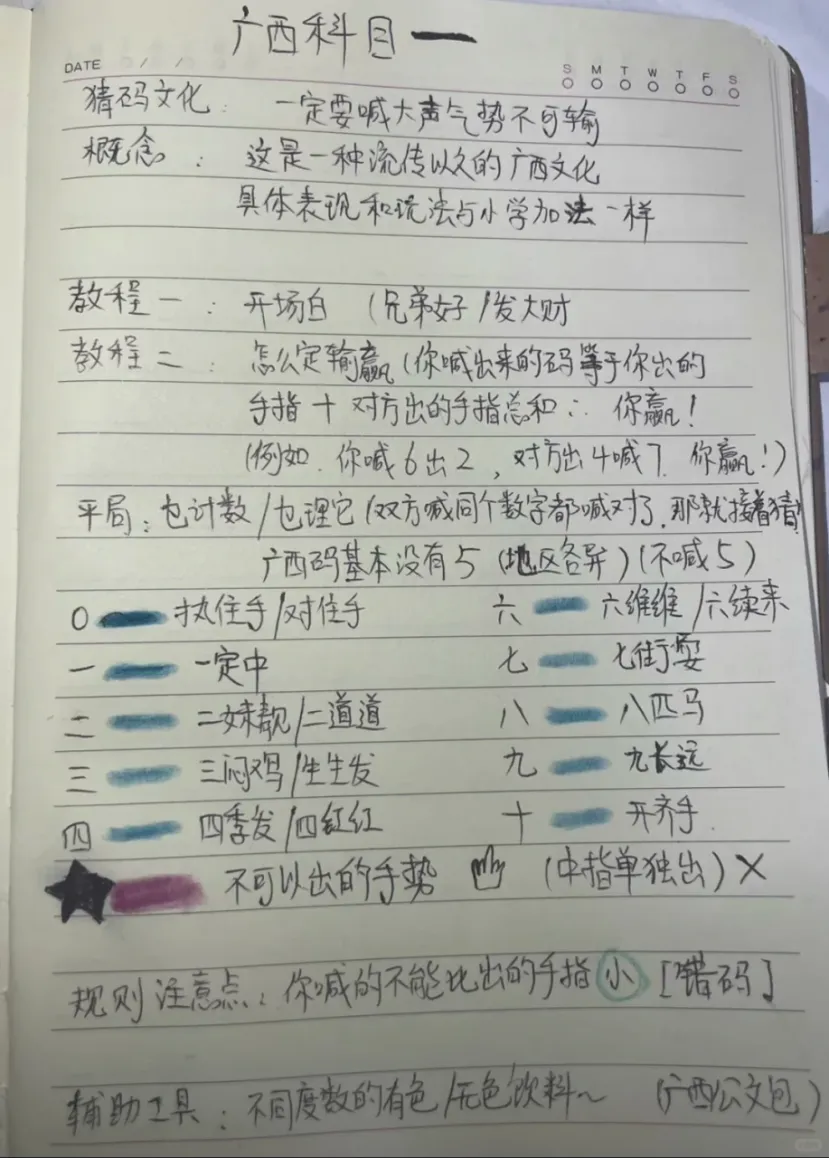 广西科目一
DATE / /
S M T W T F S
猜码文化： 一定要喊大声气势不可输
概念： 这是一种流传以久的广西文化
具体表现和玩法与小学加法一样
教程一： 开场白 （兄弟好/发大财
教程二： 怎么定输赢（你喊出来的码等于你出的
手指十对方出的手指总和∴ 你赢！
（例如．你喊6出2，对方出4喊7．你赢！）
平局：也计数/也理它（双方喊同个数字都喊对了，那就接着猜）
广西码基本没有5（地区各异）（不喊5）
0 执住手/对住手 六 六维维/六续来
一 一定中 七 七街耍
二 二妹靓/二道道 八 八匹马
三 三闷鸡/生生发 九 九长远
四 四季发/四红红 十 开齐手．
不可以出的手势 （中指单独出）×
规则注意点：你喊的不能比出的手指小［错码］
辅助工具：不同度数的有色/无色饮料~ （广西公文包）